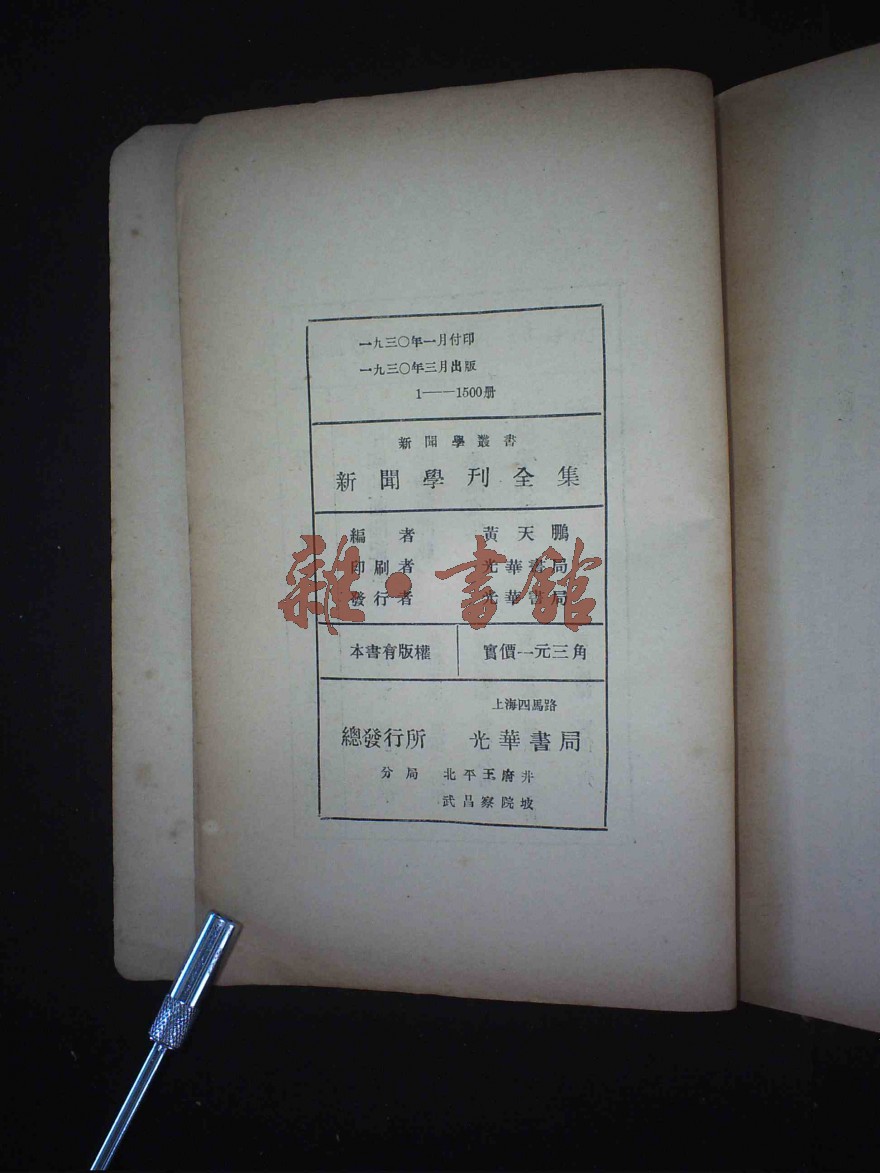 一九三〇年一月付印
一九三〇年三月出版
1——1500册
新聞學叢書
新聞學刊全集
編者 黃天鵬
印刷者 光華書局
發行者 光華書局
雜·書館
本書有版權 實價一元三角
上海四馬路
總發行所 光華書局
分局 北平王府井
武昌察院坡